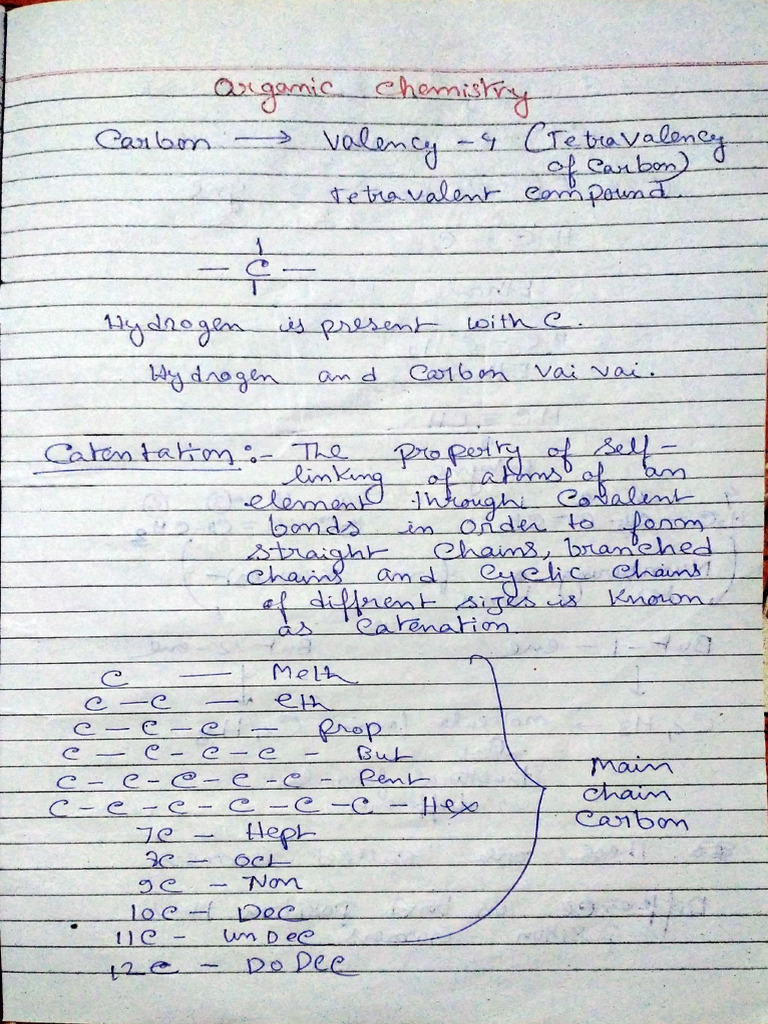 Organic Chemistry
Carbon → Valency - 4 (Tetravalency
of Carbon)
tetravalent compound.
- C -
Hydrogen is present with C.
Hydrogen and Carbon Vai Vai.
Catentation :- The property of self-
linking of atoms of an
element through Covalent
bonds in order to form
straight chains, branched
chains and cyclic chains
of diffrent sizes is known
as Catenation.
C — Meth
C - C — eth
C - C - C — Prop
C - C - C - C - But
C - C - C - C - C - Pent
C - C - C - C - C - C - Hex
7C - Hept
8C - Oct
9C - Non
10C - Dec
11C - Undec
12C - DoDec
Main
chain
Carbon